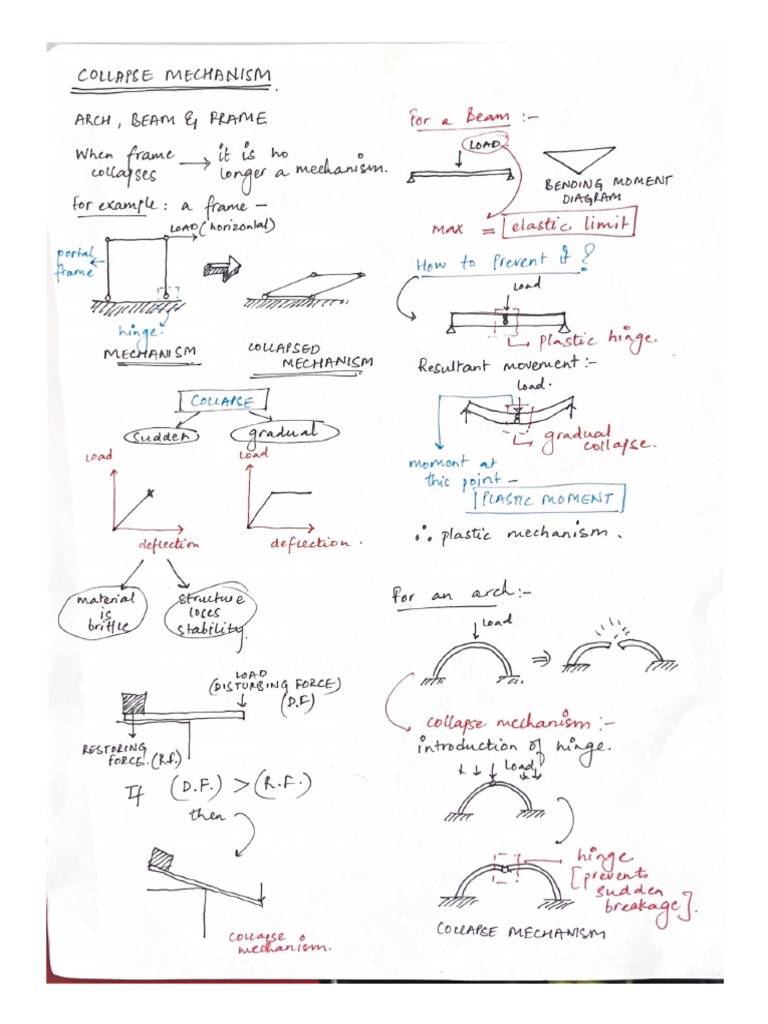 COLLAPSE MECHANISM.
ARCH, BEAM & FRAME
When frame collapses → it is no longer a mechanism.
For example: a frame –
LOAD (horizontal)
portal frame
hinge.
MECHANISM
COLLAPSED MECHANISM
COLLAPSE
sudden
gradual
Load
Load
deflection
deflection.
material is brittle
structure loses stability.
LOAD
(DISTURBING FORCE)
(D.F)
RESTORING
FORCE. (R.F.)
If (D.F.) > (R.F.)
then
collapse mechanism.
For a Beam :-
LOAD
BENDING MOMENT
DIAGRAM
MAX = elastic limit
How to Prevent it?
Load
plastic hinge.
Resultant movement:-
Load.
gradual collapse.
moment at this point –
PLASTIC MOMENT
∴ plastic mechanism.
For an arch:-
Load
⇒
collapse mechanism:-
introduction of hinge.
Load
hinge
[prevents
sudden
breakage].
COLLAPSE MECHANISM